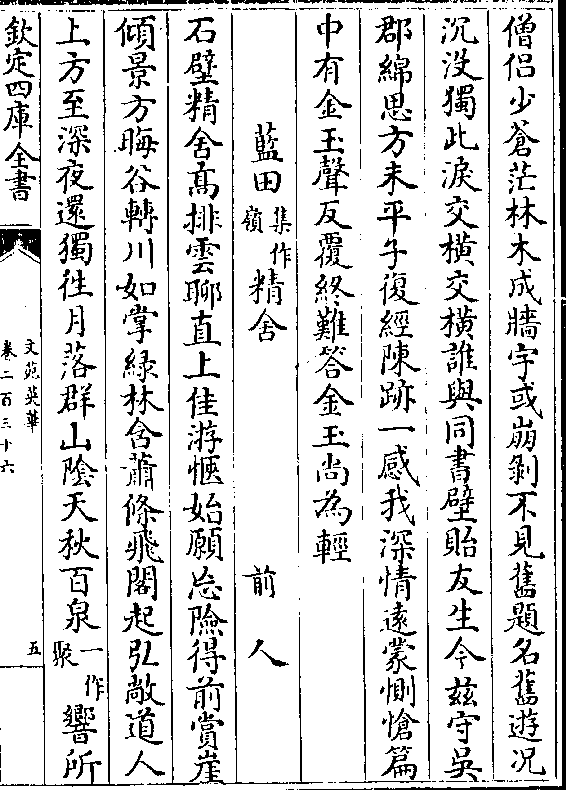 僧侣少蒼茫林木成牆宇或崩剝不見舊題名舊遊况
沉没獨此淚交横交横誰與同書壁貽友生今兹守吳
郡綿思方未平子復經陳跡一感我深情逺蒙惻愴篇
中有金玉聲反覆終難答金玉尚為輕
藍田集作嶺精舍 前人
石壁精舍髙排雲聊直上佳游愜始願忘險得前賞崖
傾景方晦谷轉川如掌緑林含蕭條飛閣起弘敞道人
上方至深夜還獨徃月落群山隂天秋百泉一作聚響所
欽定四庫全書
文苑英華
卷二百三十六
五